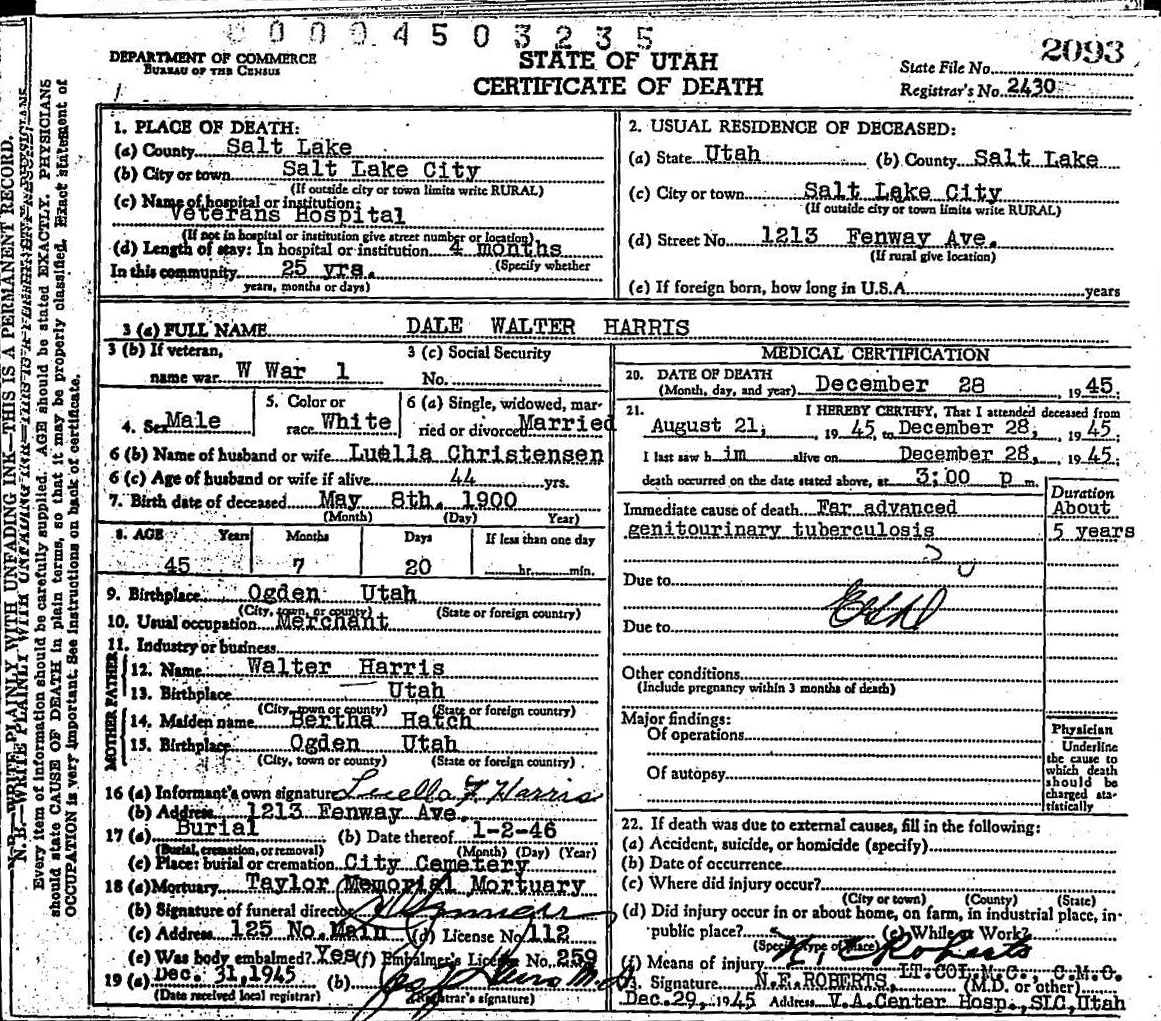 00004503235
2093
DEPARTMENT OF COMMERCE
BUREAU OF THE CENSUS
STATE OF UTAH
CERTIFICATE OF DEATH
State File No.
Registrar's No. 2430
N. B.—WRITE PLAINLY WITH UNFADING INK—THIS IS A PERMANENT RECORD.
Every item of information should be carefully supplied. AGE should be stated EXACTLY. PHYSICIANS
should state CAUSE OF DEATH in plain terms, so that it may be properly classified. Exact statement of
OCCUPATION is very important. See instructions on back of certificate.
1. PLACE OF DEATH:
(a) County Salt Lake
(b) City or town Salt Lake City
(If outside city or town limits write RURAL)
(c) Name of hospital or institution:
Veterans Hospital
(If not in hospital or institution give street number or location)
(d) Length of stay: In hospital or institution 4 months
(Specify whether
In this community 25 yrs.
years, months or days)
2. USUAL RESIDENCE OF DECEASED:
(a) State Utah (b) County Salt Lake
(c) City or town Salt Lake City
(If outside city or town limits write RURAL)
(d) Street No. 1213 Fenway Ave.
(If rural give location)
(e) If foreign born, how long in U.S.A. years
3 (a) FULL NAME DALE WALTER HARRIS
3 (b) If veteran, 3 (c) Social Security
name war W War 1 No.
4. Sex Male 5. Color or race White 6 (a) Single, widowed, married or divorced Married
6 (b) Name of husband or wife Luella Christensen
6 (c) Age of husband or wife if alive 44 yrs.
7. Birth date of deceased May 8th, 1900
(Month) (Day) Year)
8. AGE Years Months Days If less than one day
45 7 20 hr. min.
9. Birthplace Ogden Utah
(City, town, or county) (State or foreign country)
10. Usual occupation Merchant
11. Industry or business
FATHER
12. Name Walter Harris
13. Birthplace Utah
(City, town or county) (State or foreign country)
MOTHER
14. Maiden name Bertha Hatch
15. Birthplace Ogden Utah
(City, town or county) (State or foreign country)
16 (a) Informant's own signature Luella F Harris
(b) Address 1213 Fenway Ave.
17 (a) Burial (b) Date thereof 1-2-46
(Burial, cremation, or removal) (Month) (Day) (Year)
(c) Place: burial or cremation City Cemetery
18 (a) Mortuary Taylor Memorial Mortuary
(b) Signature of funeral director
(c) Address 125 No. Main (d) License No. 112
(e) Was body embalmed? Yes (f) Embalmer's License No. 259
19 (a) Dec. 31, 1945 (b)
(Date received local registrar) (Registrar's signature)
MEDICAL CERTIFICATION
20. DATE OF DEATH
(Month, day, and year) December 28 1945
21. I HEREBY CERTIFY, That I attended deceased from
August 21, 1945, to December 28, 1945;
I last saw him alive on December 28, 1945;
death occurred on the date stated above, at 3:00 p m.
Duration
Immediate cause of death Far advanced About
genitourinary tuberculosis 5 years
Due to
Due to
Other conditions
(Include pregnancy within 3 months of death)
Major findings:
Of operations
Of autopsy
Physician
Underline
the cause to
which death
should be
charged sta-
tistically
22. If death was due to external causes, fill in the following:
(a) Accident, suicide, or homicide (specify)
(b) Date of occurrence
(c) Where did injury occur?
(City or town) (County) (State)
(d) Did injury occur in or about home, on farm, in industrial place, in
public place? (e) While at Work?
(Specify type of place)
(f) Means of injury
N. E. Roberts
LT. COL. M.C., C.M.O.
23. Signature N.E. ROBERTS, (M.D. or other)
Dec. 29, 1945 Address V.A. Center Hosp., SLC, Utah